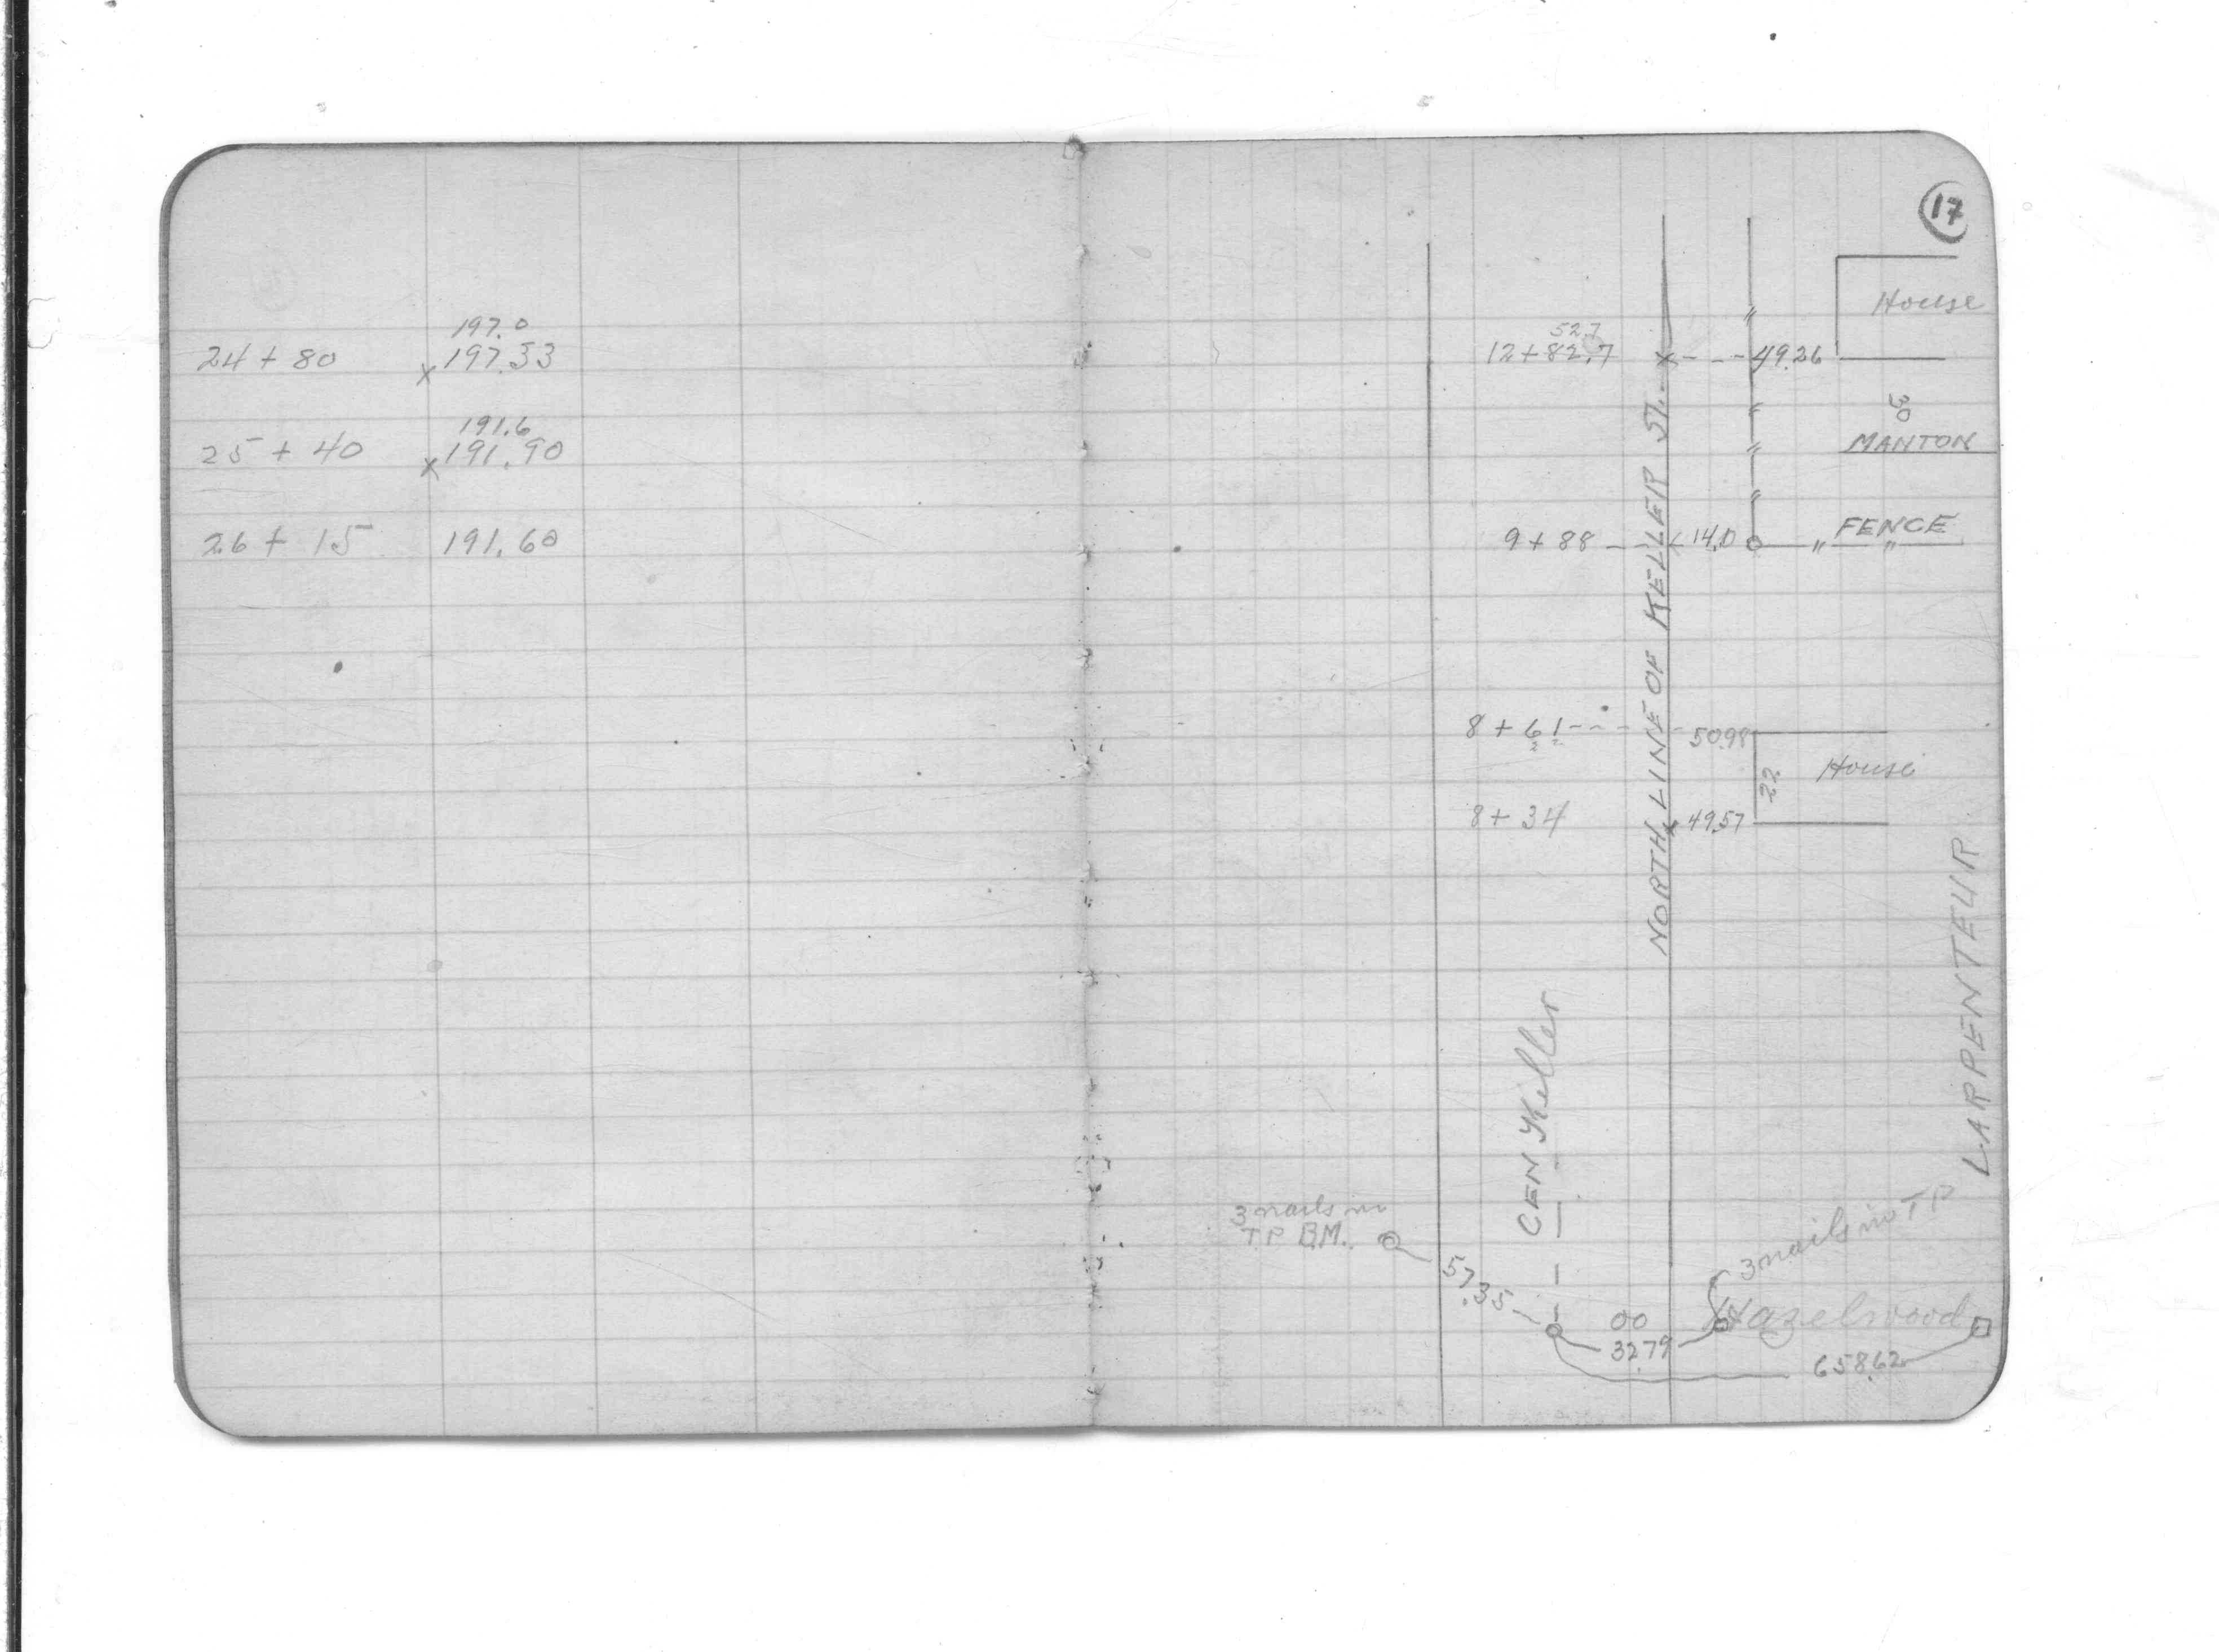 197.0
24 + 80 x 197.33
191.6
25 + 40 x 191.90
26 + 15 191.60
17
House
52.7
12+82.7 x 49.26
30
MANTON
FENCE
9 + 88 14.0
NORTH LINE OF KELLER ST.
8 + 61 50.98
22
House
8 + 34 x 49.57
LARPENTEUR
CEN Keller
3 nails in
T.P. B.M.
57.35
3 nails in TP
00
Hazelwood
32.79
658.62